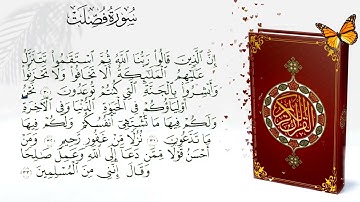 سُورَةُ فُصِّلَتْ
إِنَّ ٱلَّذِينَ قَالُوا۟ رَبُّنَا ٱللَّهُ ثُمَّ ٱسْتَقَٰمُوا۟ تَتَنَزَّلُ
عَلَيْهِمُ ٱلْمَلَٰٓئِكَةُ أَلَّا تَخَافُوا۟ وَلَا تَحْزَنُوا۟
وَأَبْشِرُوا۟ بِٱلْجَنَّةِ ٱلَّتِى كُنتُمْ تُوعَدُونَ ۝ نَحْنُ
أَوْلِيَآؤُكُمْ فِى ٱلْحَيَوٰةِ ٱلدُّنْيَا وَفِى ٱلْءَاخِرَةِ
وَلَكُمْ فِيهَا مَا تَشْتَهِىٓ أَنفُسُكُمْ وَلَكُمْ فِيهَا
مَا تَدَّعُونَ ۝ نُزُلًا مِّنْ غَفُورٍ رَّحِيمٍ ۝ وَمَنْ
أَحْسَنُ قَوْلًا مِّمَّن دَعَآ إِلَى ٱللَّهِ وَعَمِلَ صَٰلِحًا
وَقَالَ إِنَّنِى مِنَ ٱلْمُسْلِمِينَ ۝
القرآن الكريم